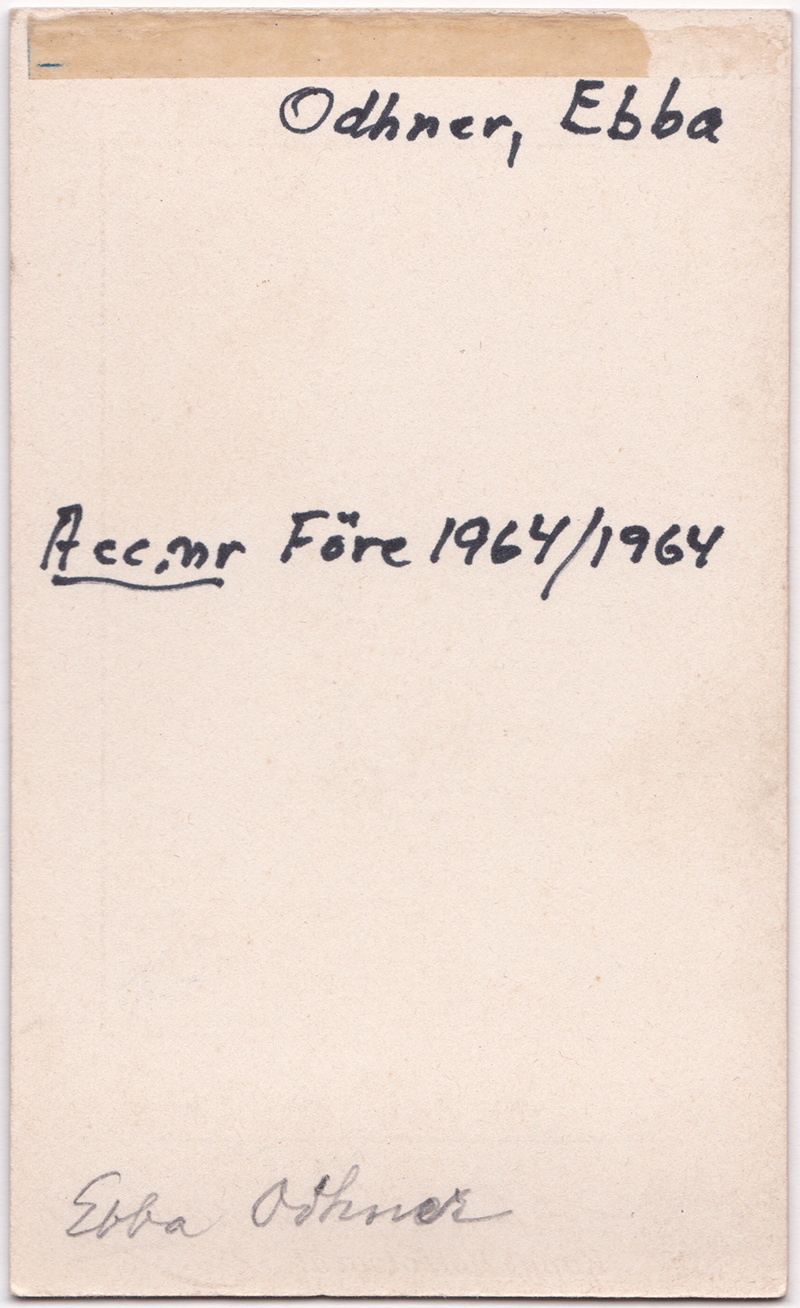 Odhner, Ebba
Acc.nr Före 1964/1964
Ebba Odhner